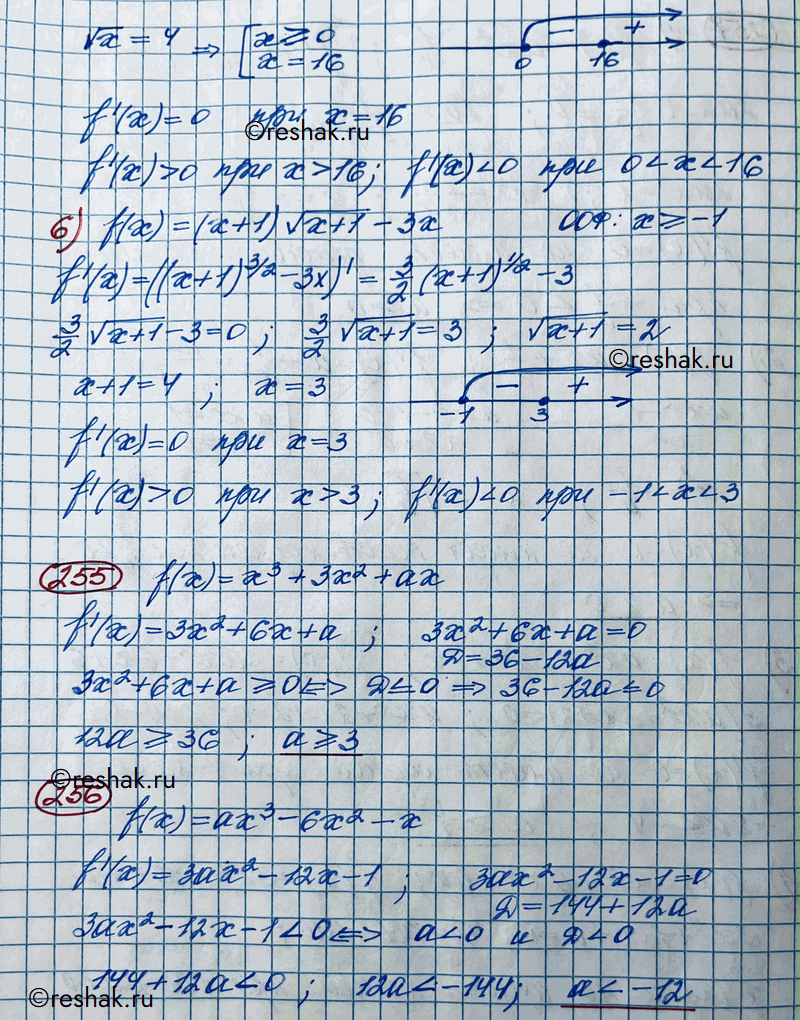 √x = 4 ⇒ [x ≥ 0
x = 16
0 − 16 +
f'(x) = 0 при x = 16
©reshak.ru
f'(x) > 0 при x > 16; f'(x) < 0 при 0 < x < 16
6) f(x) = (x+1)√x+1 − 3x ООФ: x ≥ −1
f'(x) = ((x+1)^3/2 − 3x)' = 3/2 (x+1)^1/2 − 3
3/2 √x+1 − 3 = 0; 3/2 √x+1 = 3; √x+1 = 2
©reshak.ru
x+1 = 4; x = 3
−1 − 3 +
f'(x) = 0 при x = 3
f'(x) > 0 при x > 3; f'(x) < 0 при −1 < x < 3
255 f(x) = x³ + 3x² + ax
f'(x) = 3x² + 6x + a; 3x² + 6x + a = 0
Д = 36 − 12a
3x² + 6x + a ≥ 0 ⇔ Д ≤ 0 ⇒ 36 − 12a ≤ 0
12a ≥ 36; a ≥ 3
©reshak.ru
256 f(x) = ax³ − 6x² − x
f'(x) = 3ax² − 12x − 1; 3ax² − 12x − 1 = 0
Д = 144 + 12a
3ax² − 12x − 1 < 0 ⇔ a < 0 и Д < 0
144 + 12a < 0; 12a < −144; a < −12
©reshak.ru